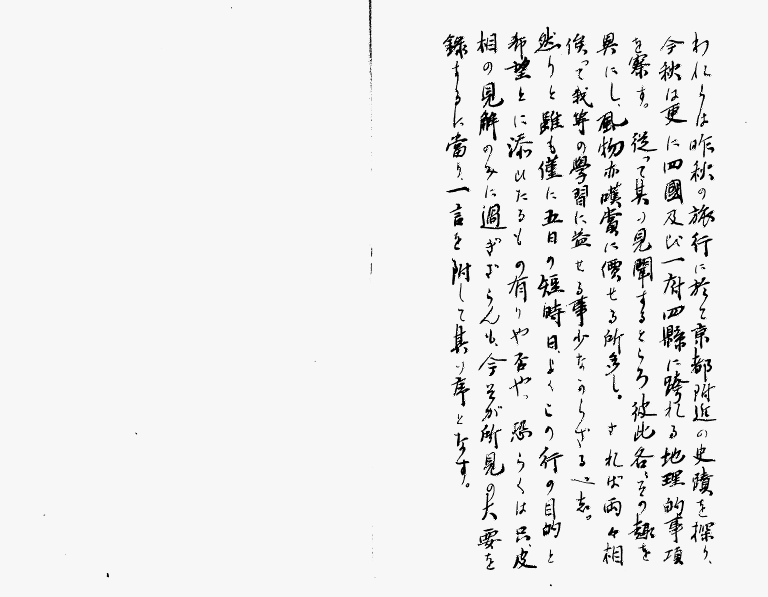 われらは昨秋の旅行に於て京都附近の史蹟を探り、
今秋は更に四國及び一府四縣に跨れる地理的事項
を察す。從って其の見聞するところ彼此各〻その趣を
異にし、風物亦嘆賞に價せる所多し。されば両々相
俟って我等の學習に益せる事少なからざる
然りと雖も僅に五日の短時日よくこの行の目的と
希望とに添ひたるもの有りや否や、恐らくは只、皮
相の見解のみに過ぎざらんも、今そが所見の大要を
録するに當り、一言を附して其の序となす。